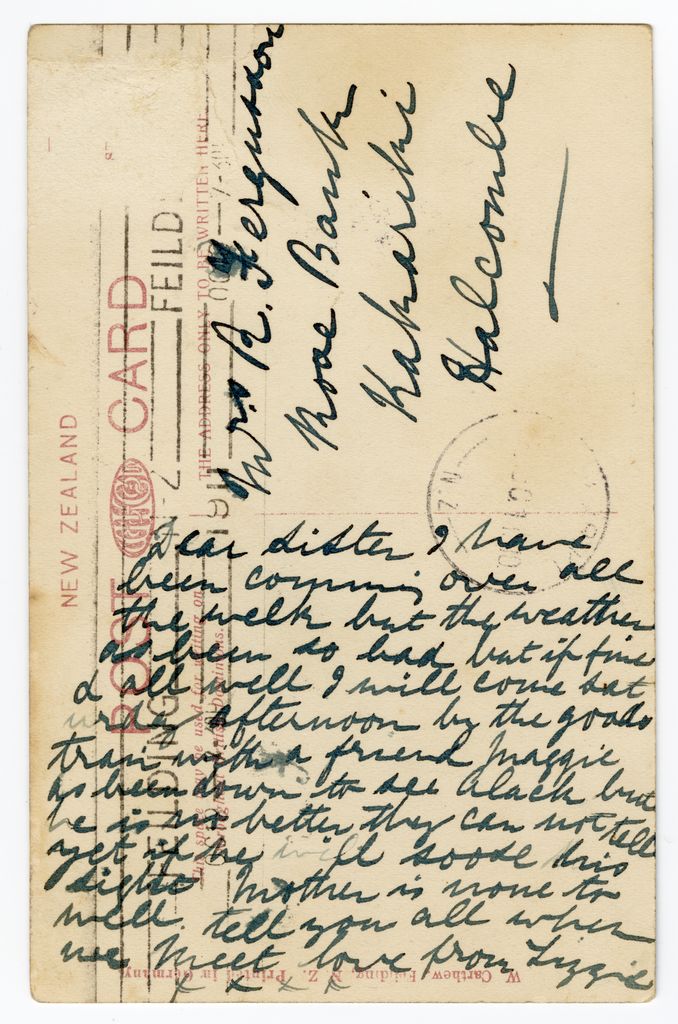 NEW ZEALAND
POST CARD
THE ADDRESS ONLY TO BE WRITTEN HERE.
This space may be used for writing on
FEILDING N-Z
FEILD
191
Mrs R. Fergusson
Rose Bank
Kakariki
Halcombe
N.Z
Dear sister I have
been comming over all
the week but the weather
as been so bad but if fine
& all well I will come Sat
urday afternoon by the goods
train with a friend Maggie
as been down to see Alack but
he is no better they can not tell
yet if he will soose his
sight Mother is none to
well. tell you all when
we meet love from Lizzie
x x x x
W. Carthew, Feilding, N. Z. Printed in Germany.